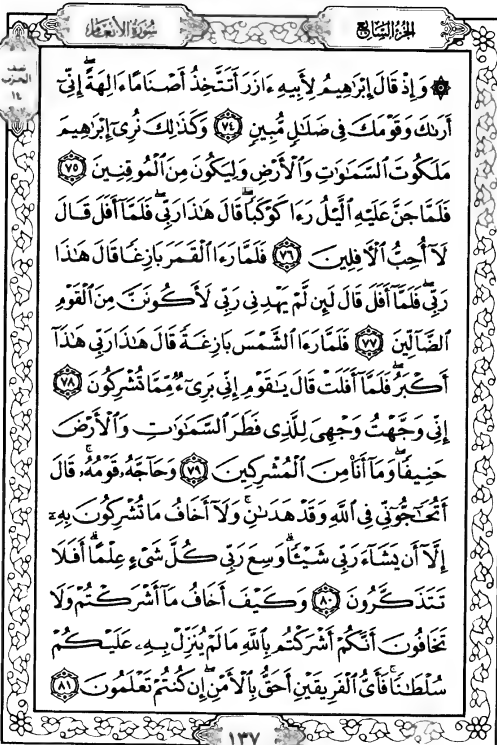 سُورَةُ الأَنعَام
الجُزءُ السَّابِعُ
نصف
الحزب
١٤
۞ وَإِذْ قَالَ إِبْرَٰهِيمُ لِأَبِيهِ ءَازَرَ أَتَتَّخِذُ أَصْنَامًا ءَالِهَةً ۖ إِنِّىٓ
أَرَىٰكَ وَقَوْمَكَ فِى ضَلَٰلٍ مُّبِينٍ ٧٤ وَكَذَٰلِكَ نُرِىٓ إِبْرَٰهِيمَ
مَلَكُوتَ ٱلسَّمَٰوَٰتِ وَٱلْأَرْضِ وَلِيَكُونَ مِنَ ٱلْمُوقِنِينَ ٧٥
فَلَمَّا جَنَّ عَلَيْهِ ٱلَّيْلُ رَءَا كَوْكَبًا ۖ قَالَ هَٰذَا رَبِّى ۖ فَلَمَّآ أَفَلَ قَالَ
لَآ أُحِبُّ ٱلْءَافِلِينَ ٧٦ فَلَمَّا رَءَا ٱلْقَمَرَ بَازِغًا قَالَ هَٰذَا
رَبِّى ۖ فَلَمَّآ أَفَلَ قَالَ لَئِن لَّمْ يَهْدِنِى رَبِّى لَأَكُونَنَّ مِنَ ٱلْقَوْمِ
ٱلضَّآلِّينَ ٧٧ فَلَمَّا رَءَا ٱلشَّمْسَ بَازِغَةً قَالَ هَٰذَا رَبِّى هَٰذَآ
أَكْبَرُ ۖ فَلَمَّآ أَفَلَتْ قَالَ يَٰقَوْمِ إِنِّى بَرِىٓءٌ مِّمَّا تُشْرِكُونَ ٧٨
إِنِّى وَجَّهْتُ وَجْهِىَ لِلَّذِى فَطَرَ ٱلسَّمَٰوَٰتِ وَٱلْأَرْضَ
حَنِيفًا ۖ وَمَآ أَنَا۠ مِنَ ٱلْمُشْرِكِينَ ٧٩ وَحَآجَّهُۥ قَوْمُهُۥ ۚ قَالَ
أَتُحَٰٓجُّوٓنِّى فِى ٱللَّهِ وَقَدْ هَدَىٰنِ ۚ وَلَآ أَخَافُ مَا تُشْرِكُونَ بِهِۦٓ
إِلَّآ أَن يَشَآءَ رَبِّى شَيْـًٔا ۗ وَسِعَ رَبِّى كُلَّ شَىْءٍ عِلْمًا ۗ أَفَلَا
تَتَذَكَّرُونَ ٨٠ وَكَيْفَ أَخَافُ مَآ أَشْرَكْتُمْ وَلَا
تَخَافُونَ أَنَّكُمْ أَشْرَكْتُم بِٱللَّهِ مَا لَمْ يُنَزِّلْ بِهِۦ عَلَيْكُمْ
سُلْطَٰنًا ۚ فَأَىُّ ٱلْفَرِيقَيْنِ أَحَقُّ بِٱلْأَمْنِ ۖ إِن كُنتُمْ تَعْلَمُونَ ٨١
١٣٧